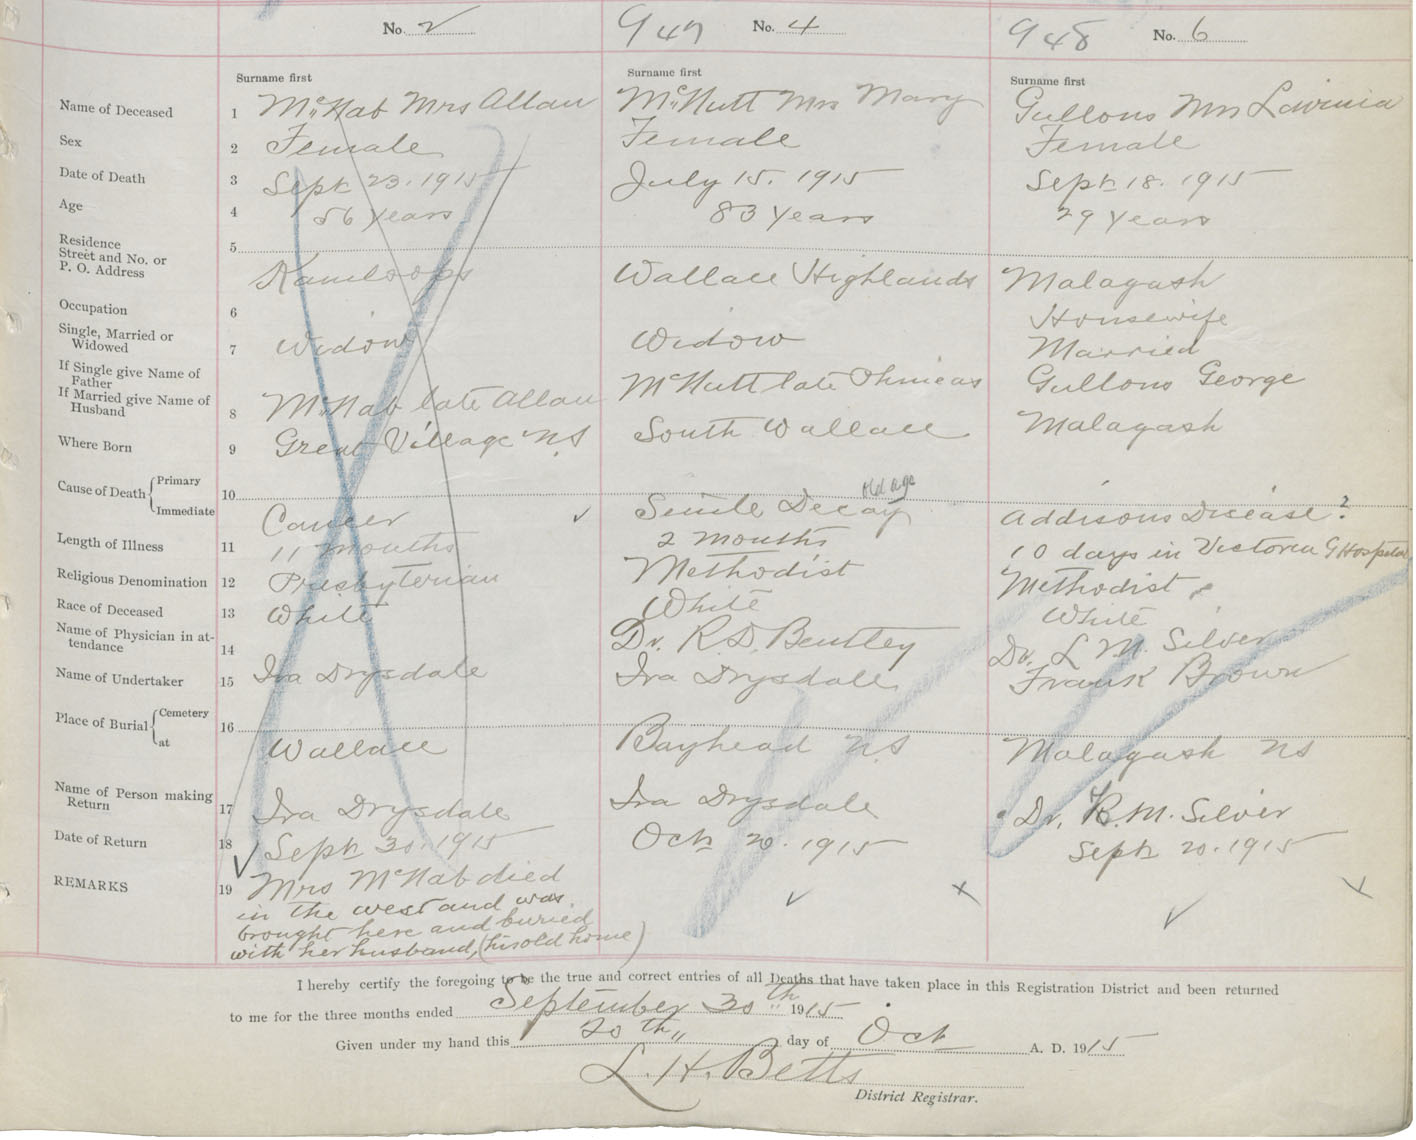 No. 2
947 No. 4
948 No. 6
Surname first
Surname first
Surname first
Name of Deceased 1 McNab Mrs Allan McNutt Mrs Mary Gullons Mrs Lavinia
Sex 2 Female Female Female
Date of Death 3 Sept 23. 1915 July 15. 1915 Sept 18. 1915
Age 4 56 years 83 years 29 years
Residence
Street and No. or 5
P. O. Address Kamloops Wallace Highlands Malagash
Occupation 6 Housewife
Single, Married or
Widowed 7 Widow Widow Married
If Single give Name of
Father
If Married give Name of
Husband 8 McNab late Allan McNutt late Phineas Gullons George
Where Born 9 Great Village NS South Wallace Malagash
Cause of Death { Primary 10 old age
Immediate Cancer Senile Decay Addisons Disease ?
Length of Illness 11 11 months 2 months 10 days in Victoria G Hospital
Religious Denomination 12 Presbyterian Methodist Methodist
Race of Deceased 13 White White White
Name of Physician in at-
tendance 14 Dr. R. D. Bentley Dr. L M. Silver
Name of Undertaker 15 Ira Drysdale Ira Drysdale Frank Brown
Place of Burial { Cemetery 16
at Wallace Bayhead NS Malagash NS
Name of Person making
Return 17 Ira Drysdale Ira Drysdale Dr. M. Silver
Date of Return 18 Sept 30. 1915 Oct 20. 1915 Sept 20. 1915
REMARKS 19 Mrs McNab died
in the west and was
brought here and buried
with her husband, (his old home)
I hereby certify the foregoing to be the true and correct entries of all Deaths that have taken place in this Registration District and been returned
to me for the three months ended September 30th 1915
Given under my hand this 20th day of Oct A. D. 1915
L. H. Betts
District Registrar.